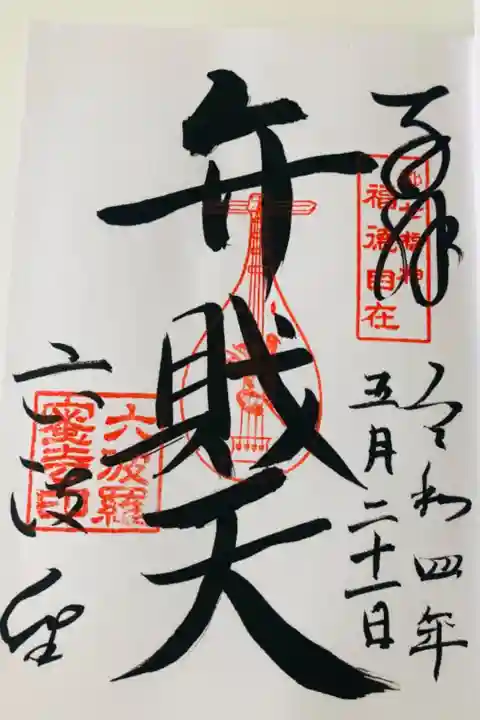 奉拝
都七福神
福徳自在
令和四年
五月二十一日
弁財天
六波羅
蜜寺印
六波